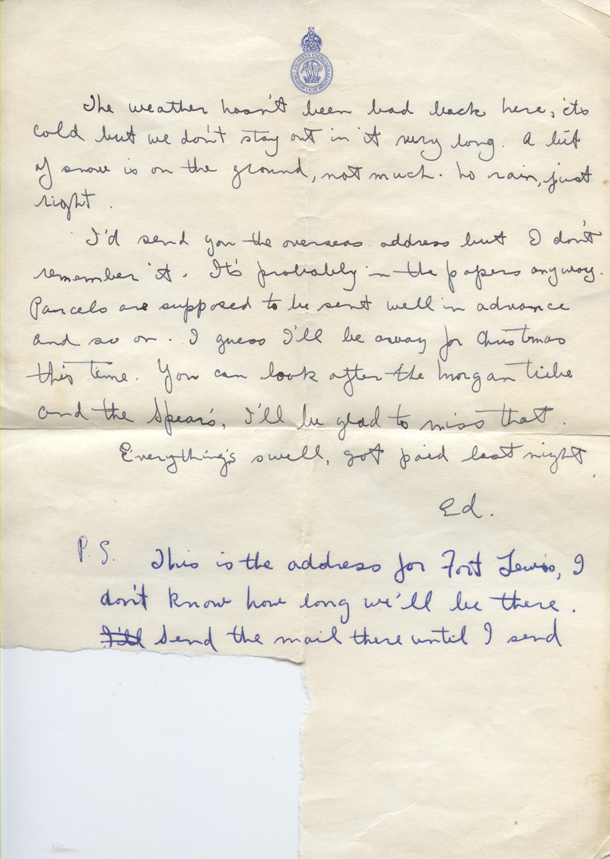 The weather hasn't been bad back here, its
cold but we don't stay out in it very long. A bit
of snow is on the ground, not much. No rain, just
right.
I'd send you the overseas address but I don't
remember it. It's probably in the papers anyway.
Parcels are supposed to be sent well in advance
and so on. I guess I'll be away for Christmas
this time. You can look after the Morgan tribe
and the Spears, I'll be glad to miss that.
Everything's swell, got paid last night.
Ed.
P.S. This is the address for Fort Lewis, I
don't know how long we'll be there.
I'll Send the mail there until I send